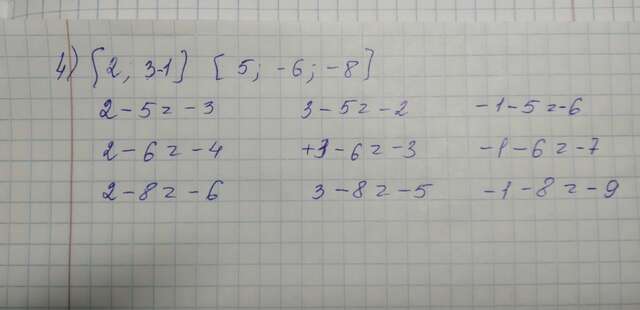 4) [2; 3-1] [5; -6; -8]
2-5=-3 3-5=-2 -1-5=-6
2-6=-4 +3-6=-3 -1-6=-7
2-8=-6 3-8=-5 -1-8=-9